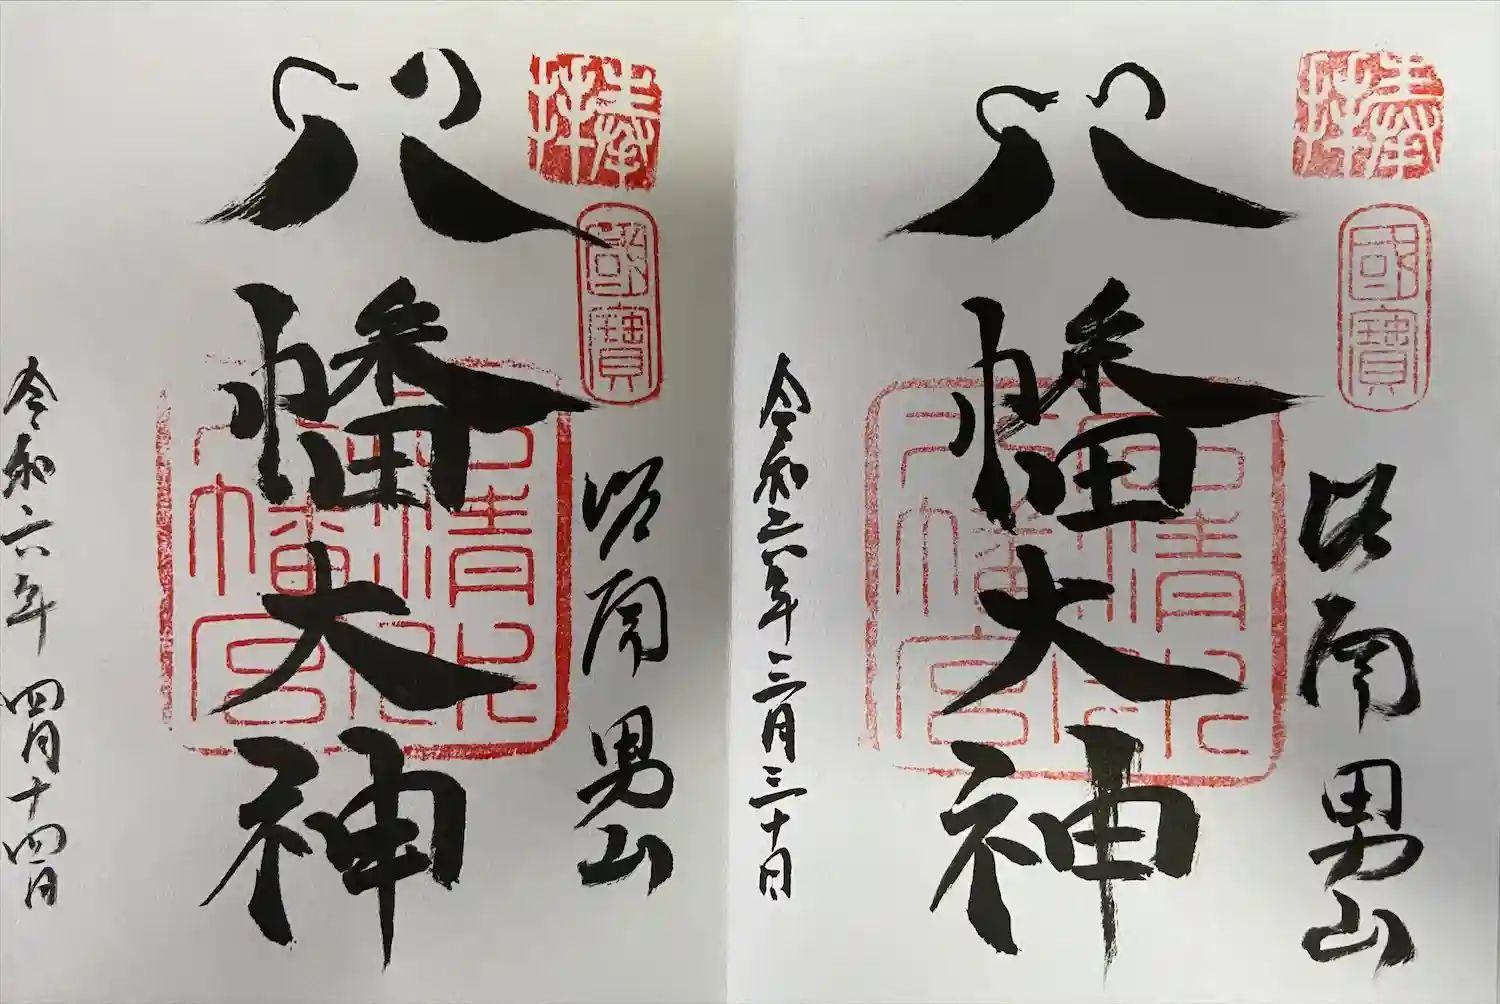 奉拝
國寶
都南男山
八幡大神
石清水八幡宮
令和六年三月三十日
奉拝
國寶
都南男山
八幡大神
石清水八幡宮
令和六年四月十四日